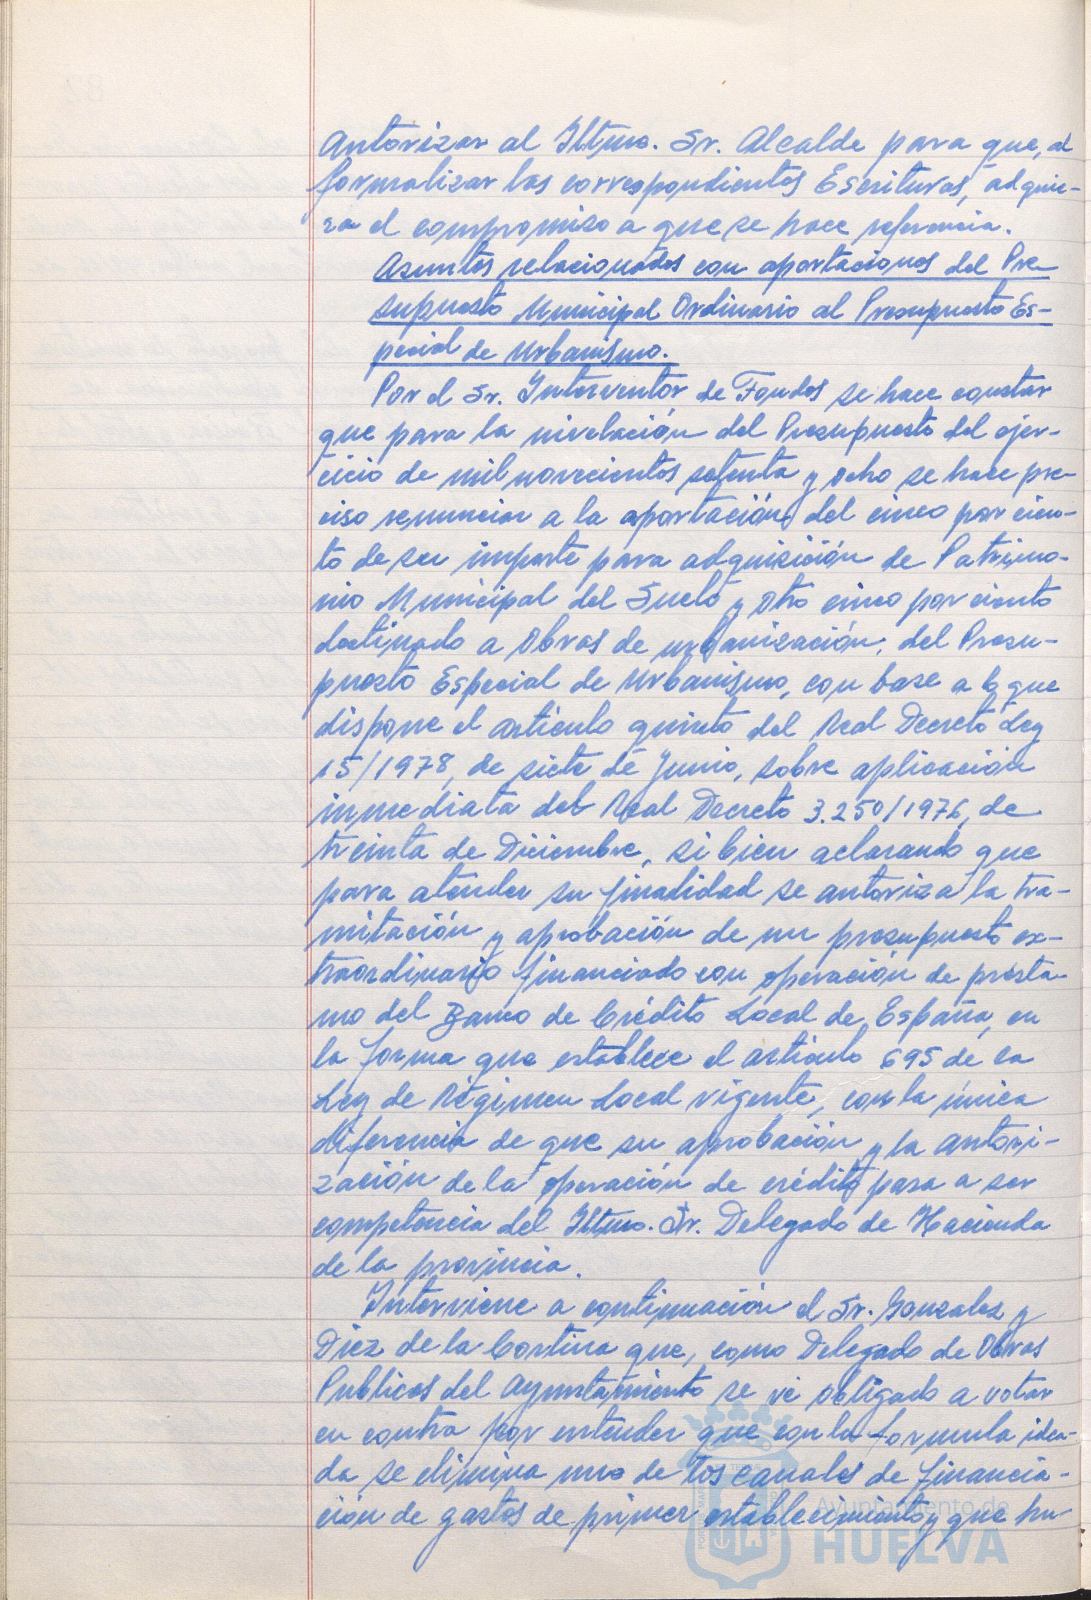 Autorizar al Iltmo. Sr. Alcalde para que, al
formalizar las correspondientes Escrituras, adquie-
ra el compromiso a que se hace referencia.
Asuntos relacionados con aportaciones del Pre-
supuesto Municipal Ordinario al Presupuesto Es-
pecial de Urbanismo.
Por el Sr. Interventor de Fondos se hace constar
que para la nivelación del Presupuesto del ejer-
cicio de mil novecientos setenta y ocho se hace pre-
ciso renunciar a la aportación del cinco por cien-
to de su importe para adquisición de Patrimo-
nio Municipal del Suelo y otro cinco por ciento
destinado a Obras de urbanización, del Presu-
puesto Especial de Urbanismo, con base a lo que
dispone el artículo quinto del Real Decreto Ley
15/1978, de siete de Junio, sobre aplicación
inmediata del Real Decreto 3.250/1976, de
treinta de Diciembre, si bien aclarando que
para atender su finalidad se autoriza la tra-
mitación y aprobación de un presupuesto ex-
traordinario financiado con operación de présta-
mo del Banco de Crédito Local de España, en
la forma que establece el artículo 695 de la
Ley de Régimen Local vigente, con la única
diferencia de que su aprobación y la autori-
zación de la operación de crédito pasa a ser
competencia del Iltmo. Sr. Delegado de Hacienda
de la provincia.
Interviene a continuación el Sr. Gonzalez y
Diez de la Cortina que, como Delegado de Obras
Publicas del Ayuntamiento se vé obligado a votar
en contra por entender que con la formula idea-
da se elimina uno de los canales de financia-
ción de gastos de primer establecimiento y que hu-
Ayuntamiento de
HUELVA